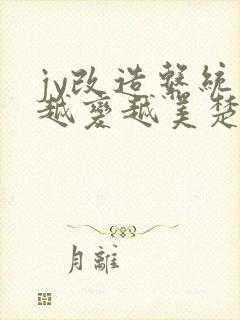 jy改造系統
越變越美楚
月離